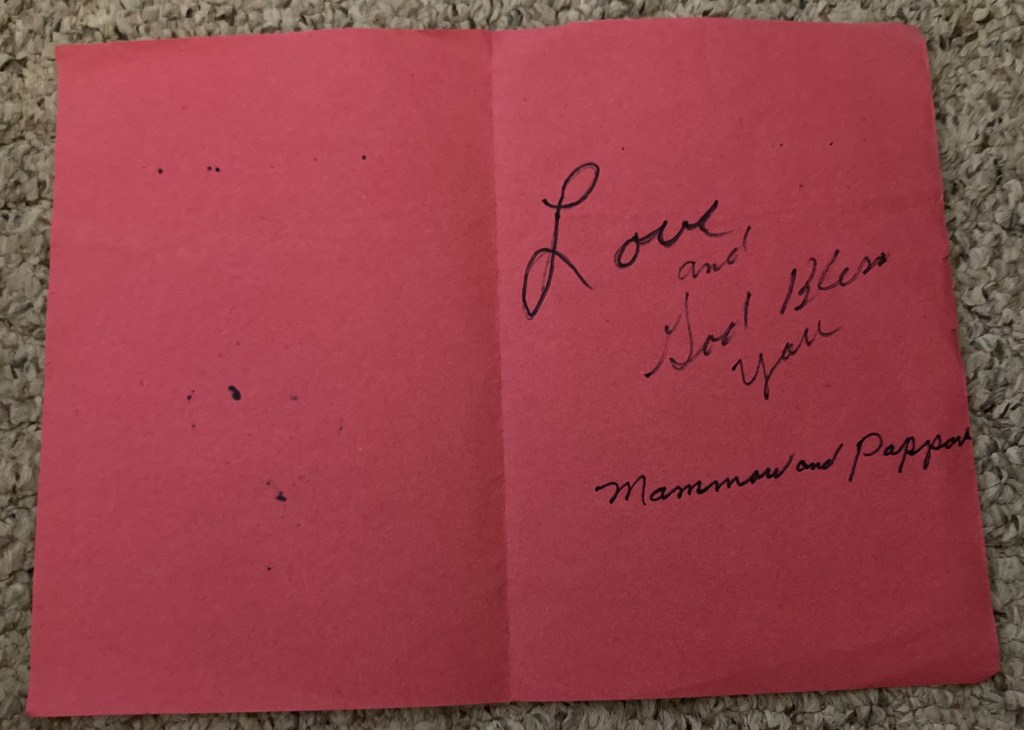 Love
and
God Bless
you
Mammow and Pappow